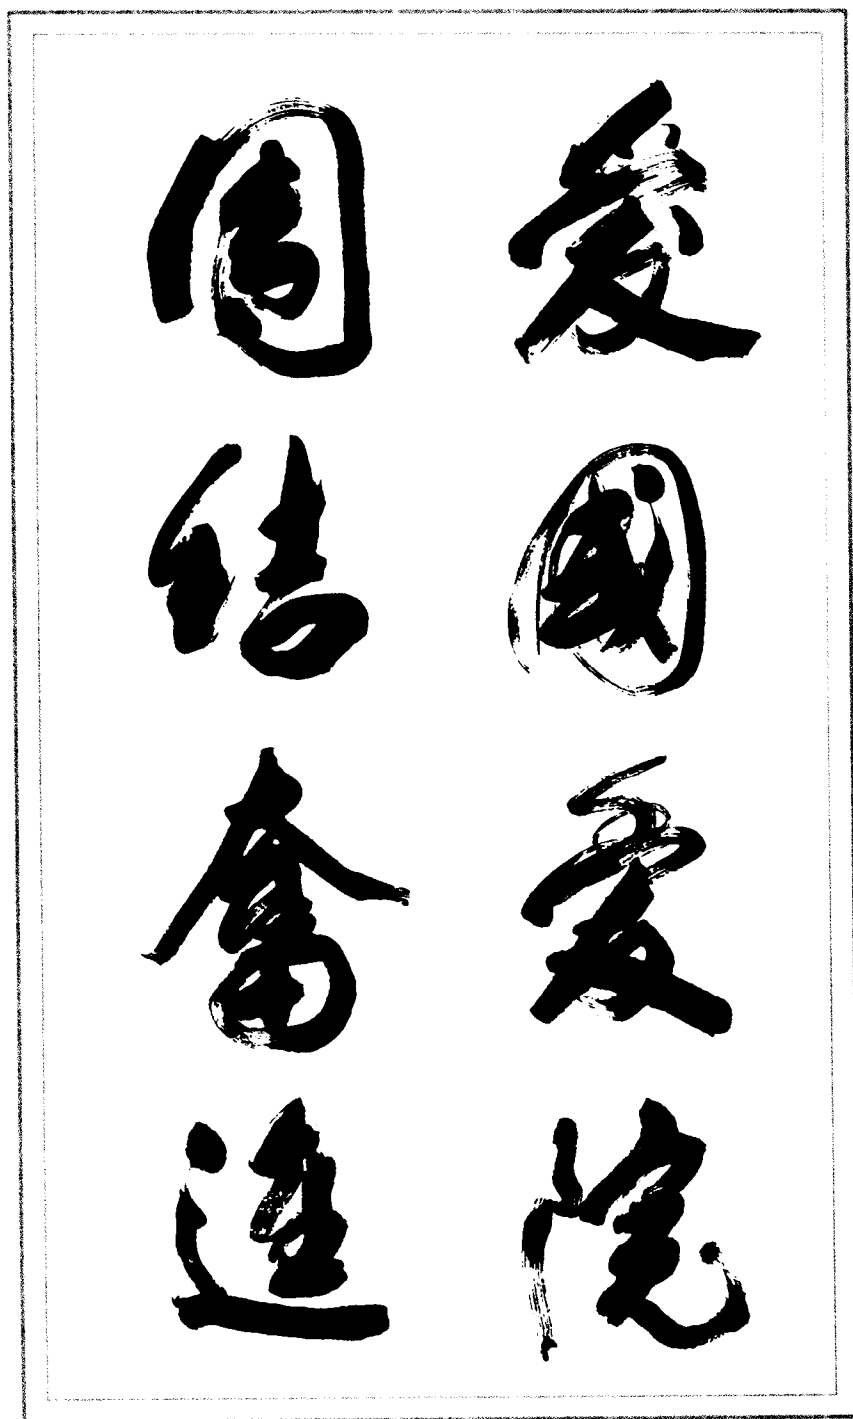 愛國愛院
團結奮進